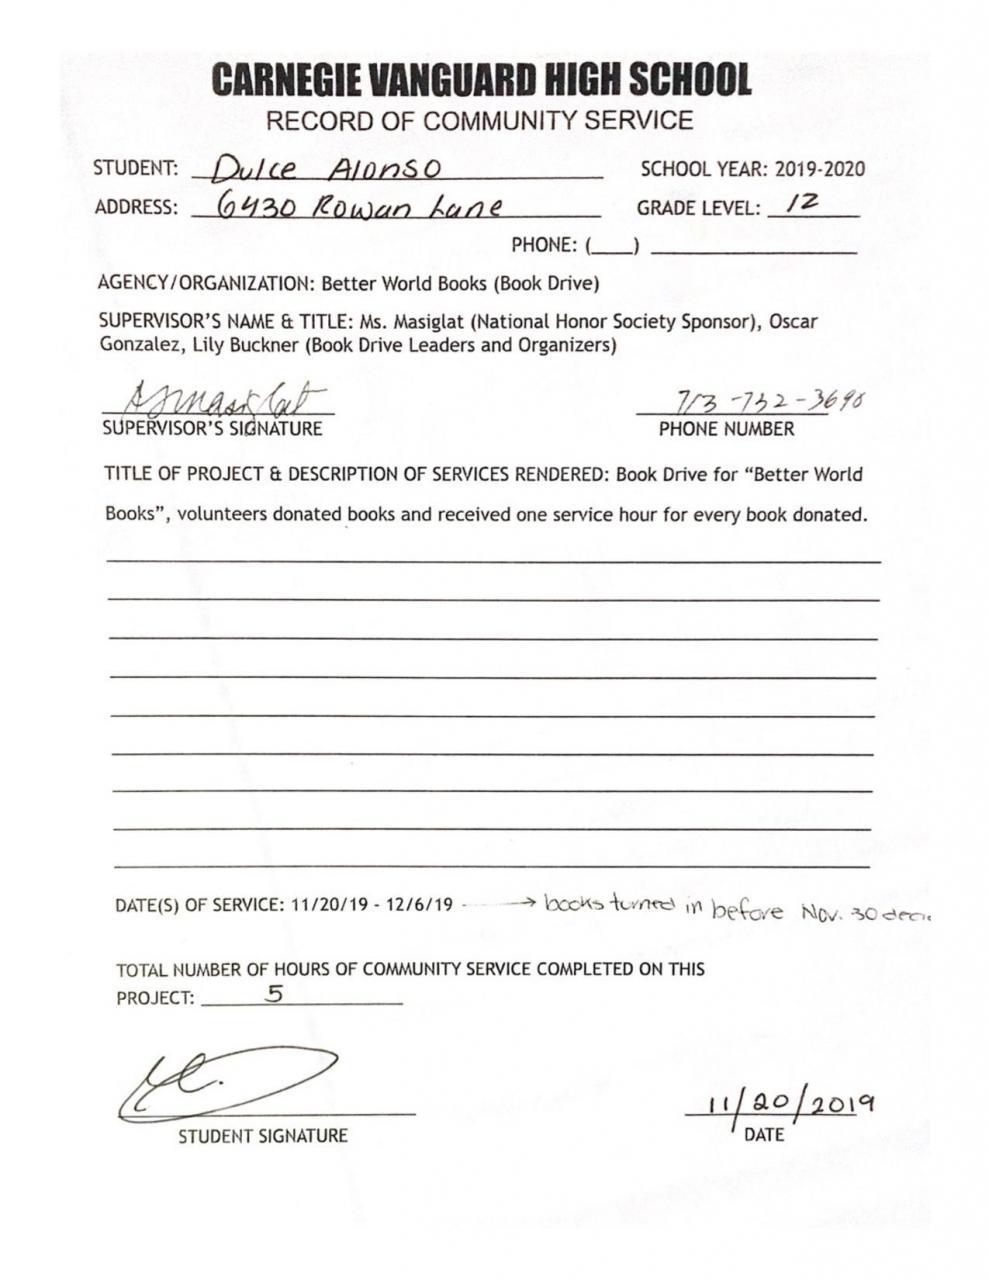 CARNEGIE VANGUARD HIGH SCHOOL
RECORD OF COMMUNITY SERVICE
STUDENT: Dulce Alonso SCHOOL YEAR: 2019-2020
ADDRESS: 6430 Rowan Lane GRADE LEVEL: 12
PHONE: (___)
AGENCY/ORGANIZATION: Better World Books (Book Drive)
SUPERVISOR'S NAME & TITLE: Ms. Masiglat (National Honor Society Sponsor), Oscar
Gonzalez, Lily Buckner (Book Drive Leaders and Organizers)
713-732-3690
SUPERVISOR'S SIGNATURE PHONE NUMBER
TITLE OF PROJECT & DESCRIPTION OF SERVICES RENDERED: Book Drive for "Better World
Books", volunteers donated books and received one service hour for every book donated.
DATE(S) OF SERVICE: 11/20/19 - 12/6/19 → books turned in before Nov. 30
TOTAL NUMBER OF HOURS OF COMMUNITY SERVICE COMPLETED ON THIS
PROJECT: 5
11/20/2019
STUDENT SIGNATURE DATE